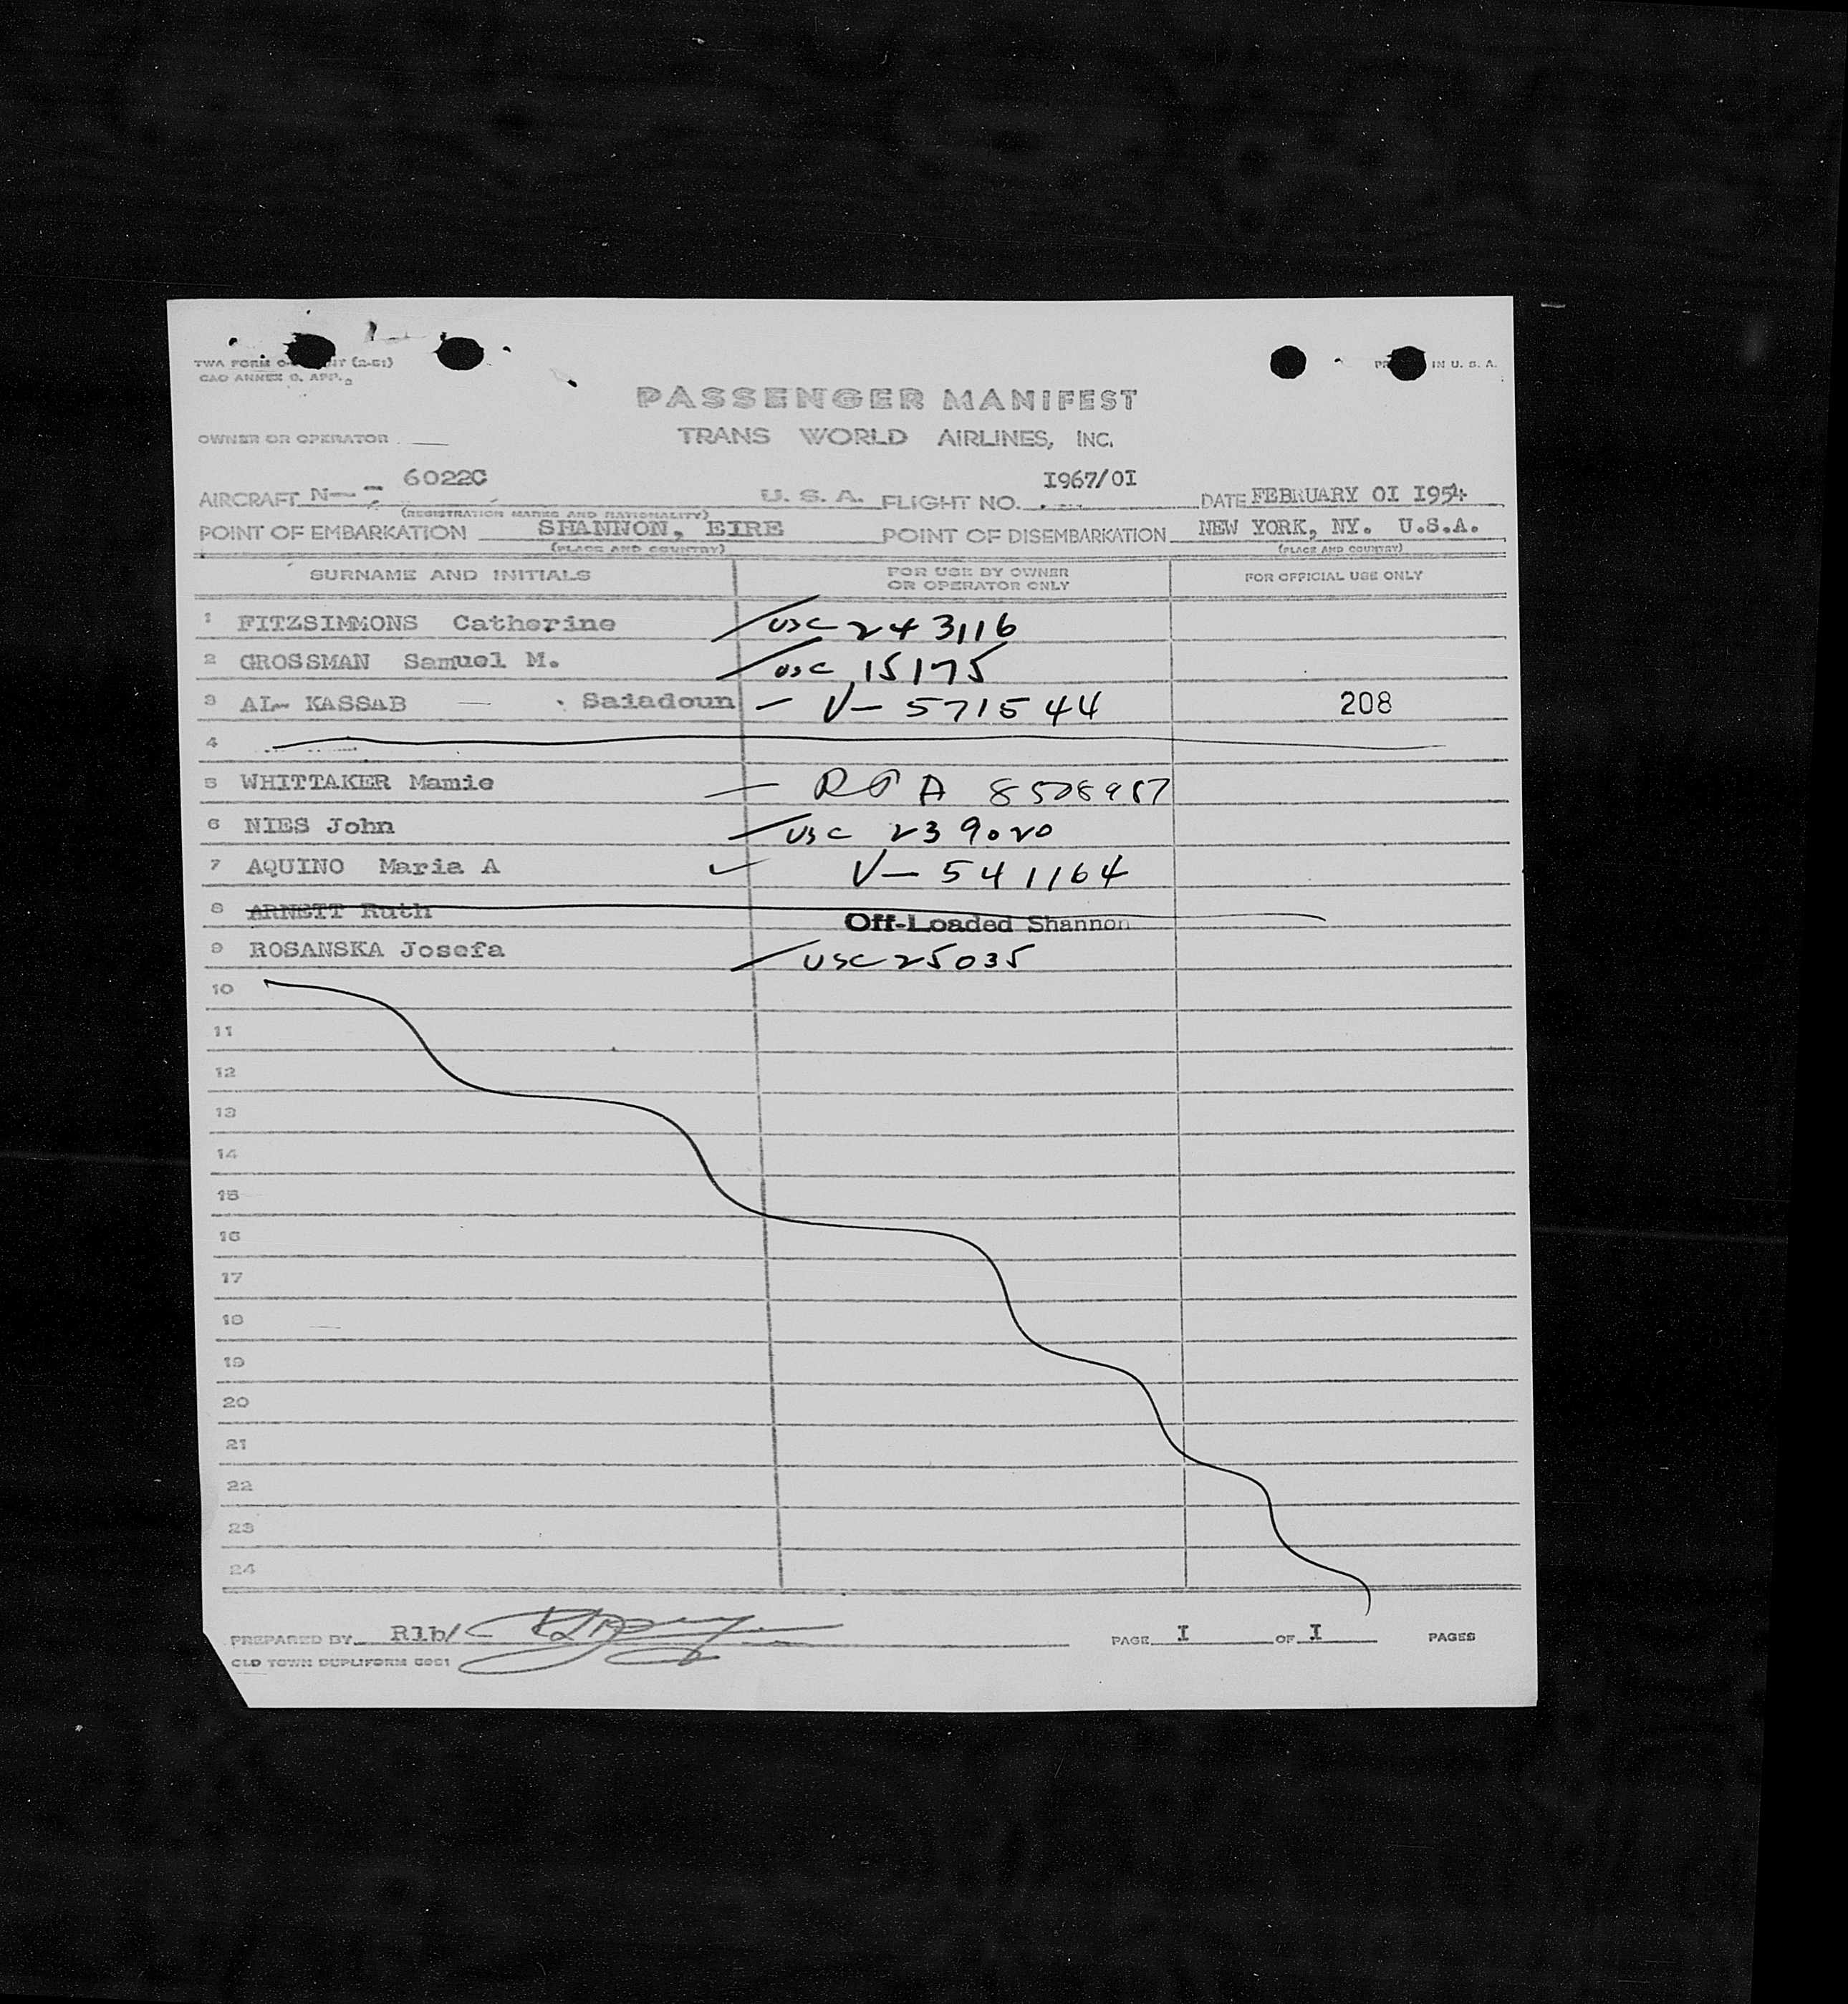 TWA FORM (2-51)
CAO ANNEX 9, APP.
IN U. S. A.
PASSENGER MANIFEST
OWNER OR OPERATOR
TRANS WORLD AIRLINES, INC.
AIRCRAFT N— 6022C U. S. A. FLIGHT NO. I967/0I DATE FEBRUARY 0I I954
(REGISTRATION MARKS AND NATIONALITY)
POINT OF EMBARKATION SHANNON, EIRE POINT OF DISEMBARKATION NEW YORK, NY. U.S.A.
(PLACE AND COUNTRY) (PLACE AND COUNTRY)
SURNAME AND INITIALS FOR USE BY OWNER OR OPERATOR ONLY FOR OFFICIAL USE ONLY
1 FITZSIMMONS Catherine USC 243116
2 GROSSMAN Samuel M. USC 15175
3 AL- KASSAB — Saiadoun — V- 571544 208
4
5 WHITTAKER Mamie — A
6 NIES John USC 239020
7 AQUINO Maria A ✓ V- 541164
8 ARNETT Ruth Off-Loaded Shannon
9 ROSANSKA Josefa USC 25035
10
11
12
13
14
15
16
17
18
19
20
21
22
23
24
PREPARED BY Rlb/ PAGE I OF I PAGES
OLD TOWN DUPLIFORM